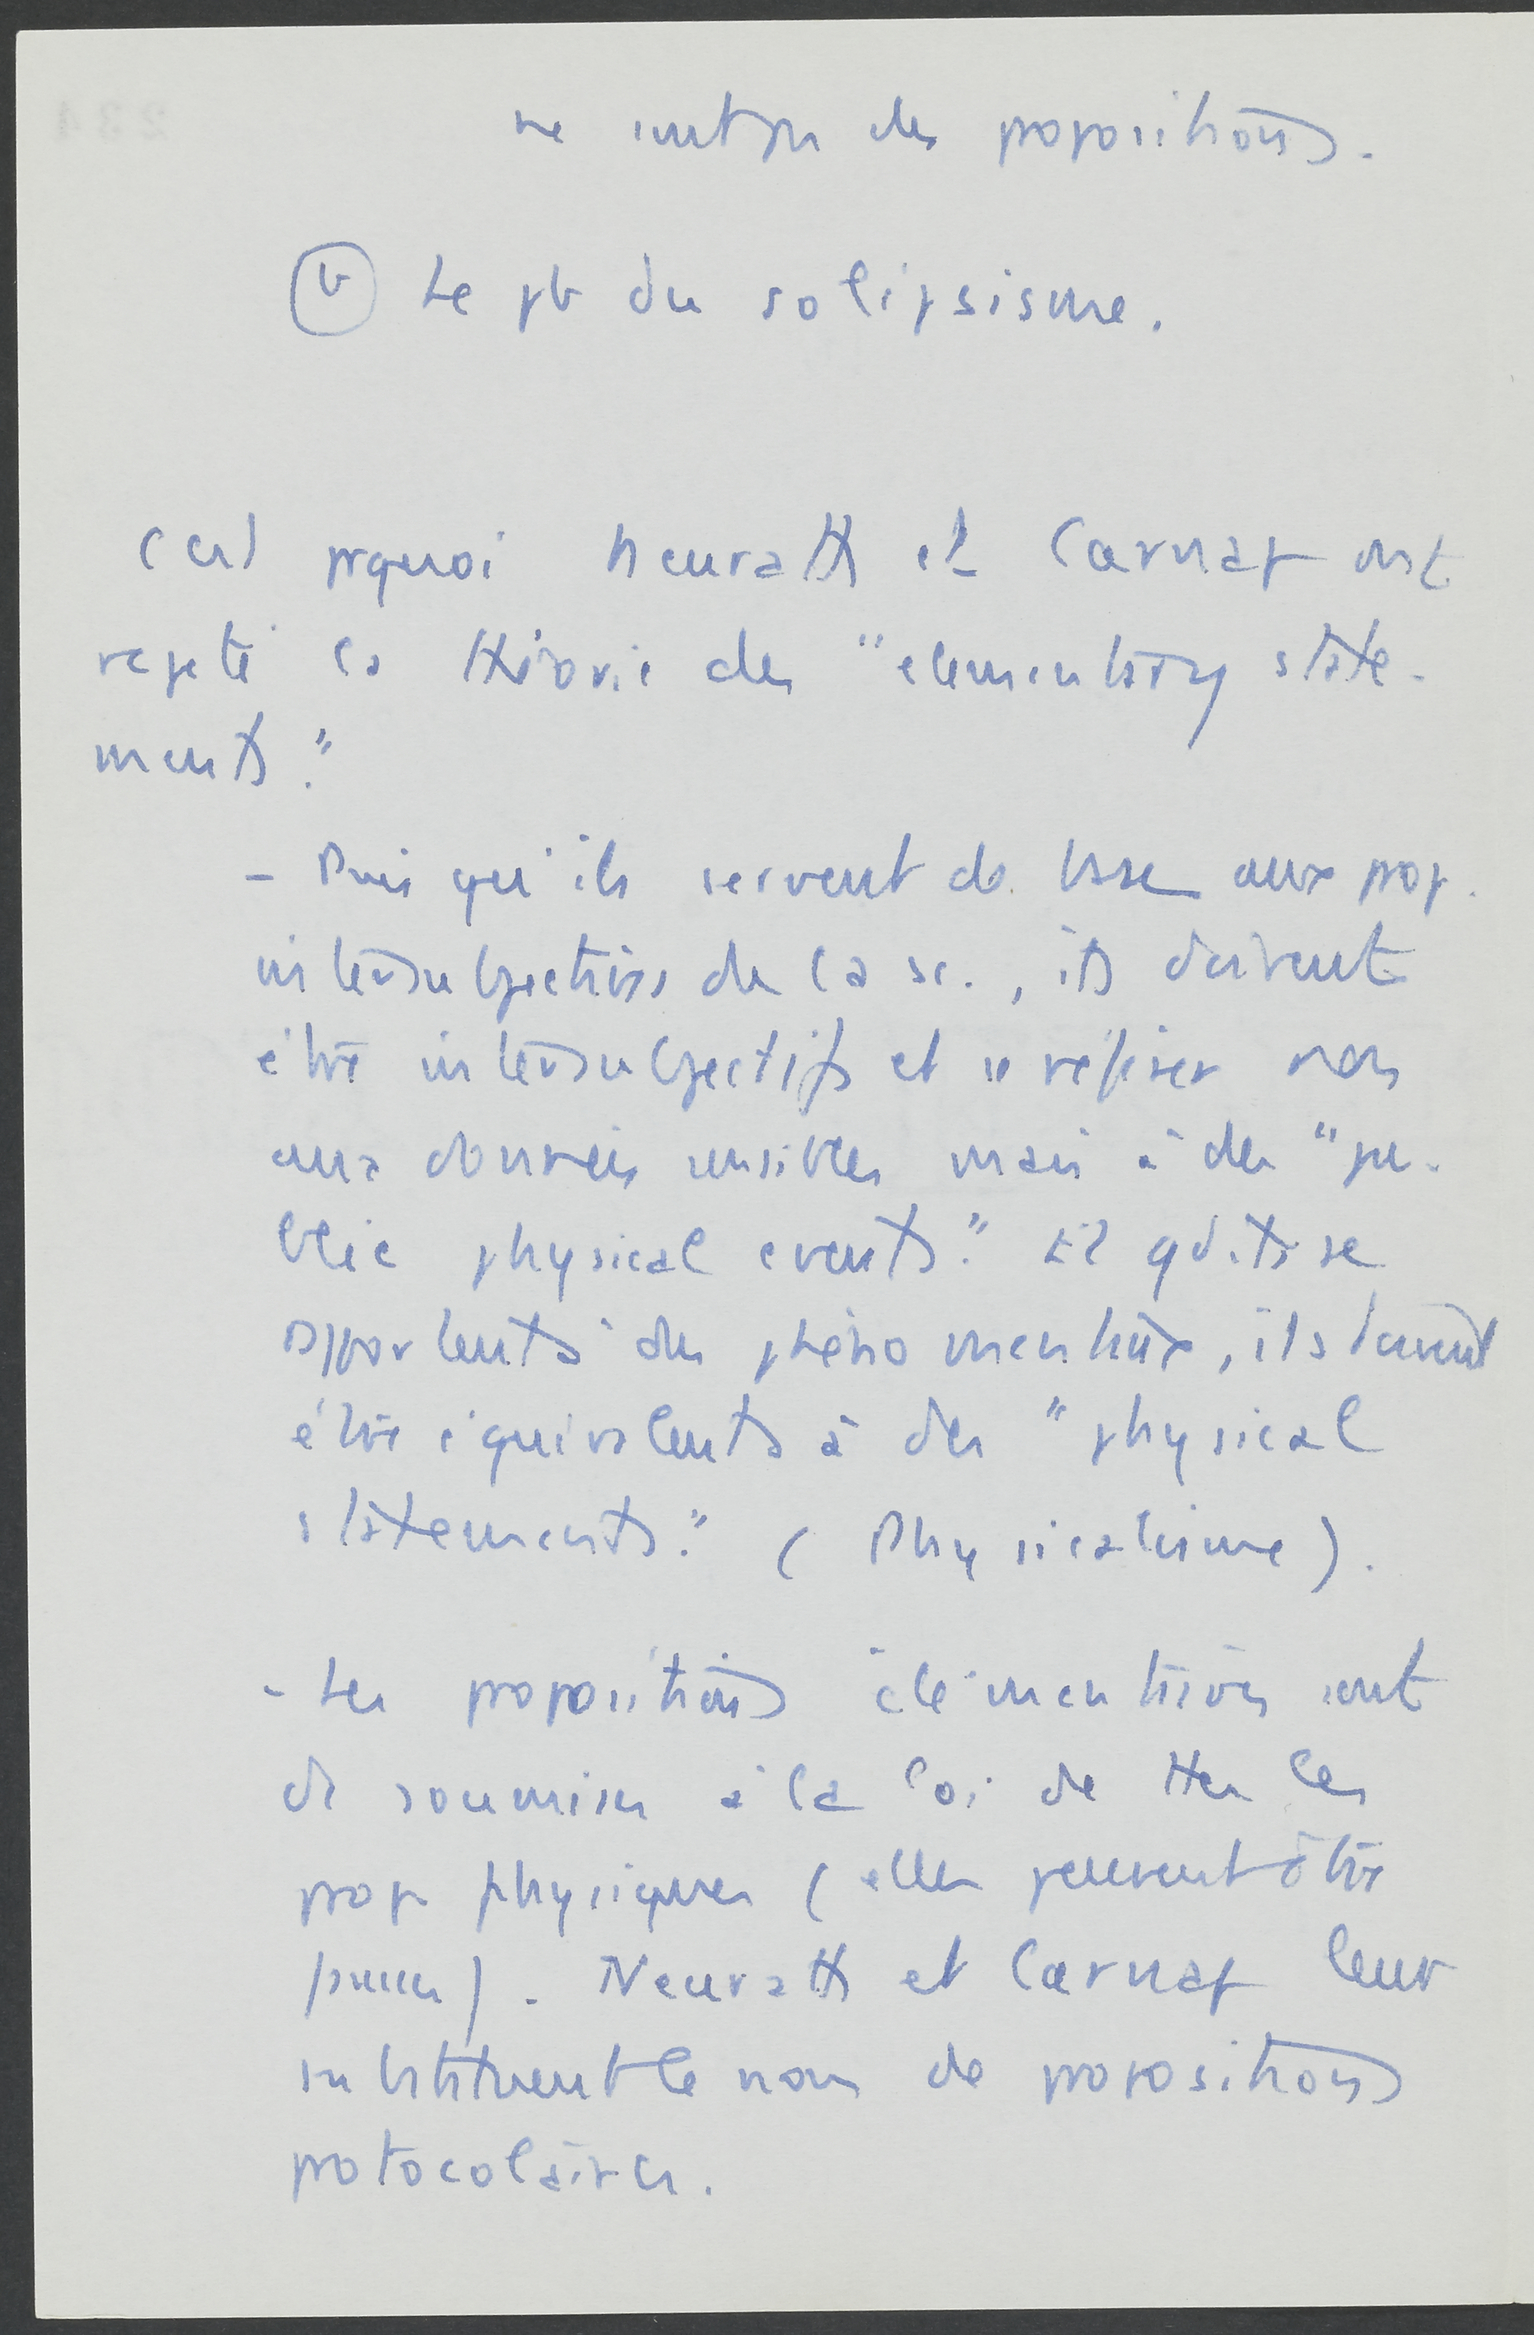 ne sont pas des propositions.
(b) Le pb du solipsisme.
C'est prquoi Neurath et Carnap ont
rejeté la théorie des "elementary state-
ments."
- Puis qu'ils servent de base aux prop.
intersubjectives de la sc., ils doivent
être intersubjectifs et se référer non
aux données sensibles mais à des "pu-
blic physical events." Et qd ils se
rapportent à des phéno mentaux, ils doivent
être équivalents à des "physical
statements." (Physicalisme).
- Les propositions élémentaires sont
dc soumises à la loi de ttes les
prop physiques (elles peuvent être
fausses). Neurath et Carnap leur
substituent le nom de propositions
protocolaires.